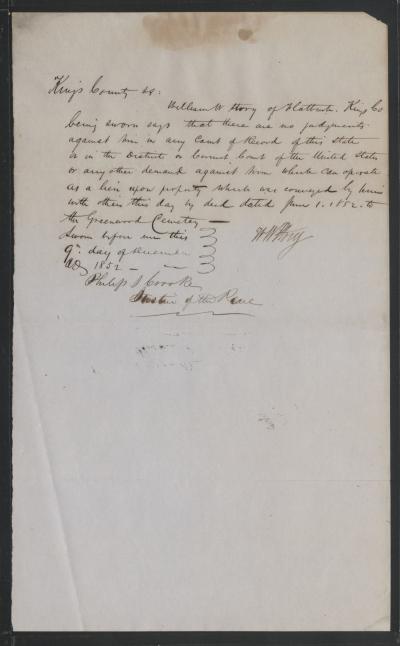 Kings County ss:
William W Story of Flatbush, Kings Co
being sworn says that there are no judgments
against him in any Court of Record of this State
or in the District or Circuit Court of the United States
or any other demand against him which can operate
as a lien upon property which was conveyed by him
with others this day by deed dated June 1. 1852. to
the Greenwood Cemetery —
Sworn before me this
9th day of
1852 —
Philip S Crooke
Justice of the Peace